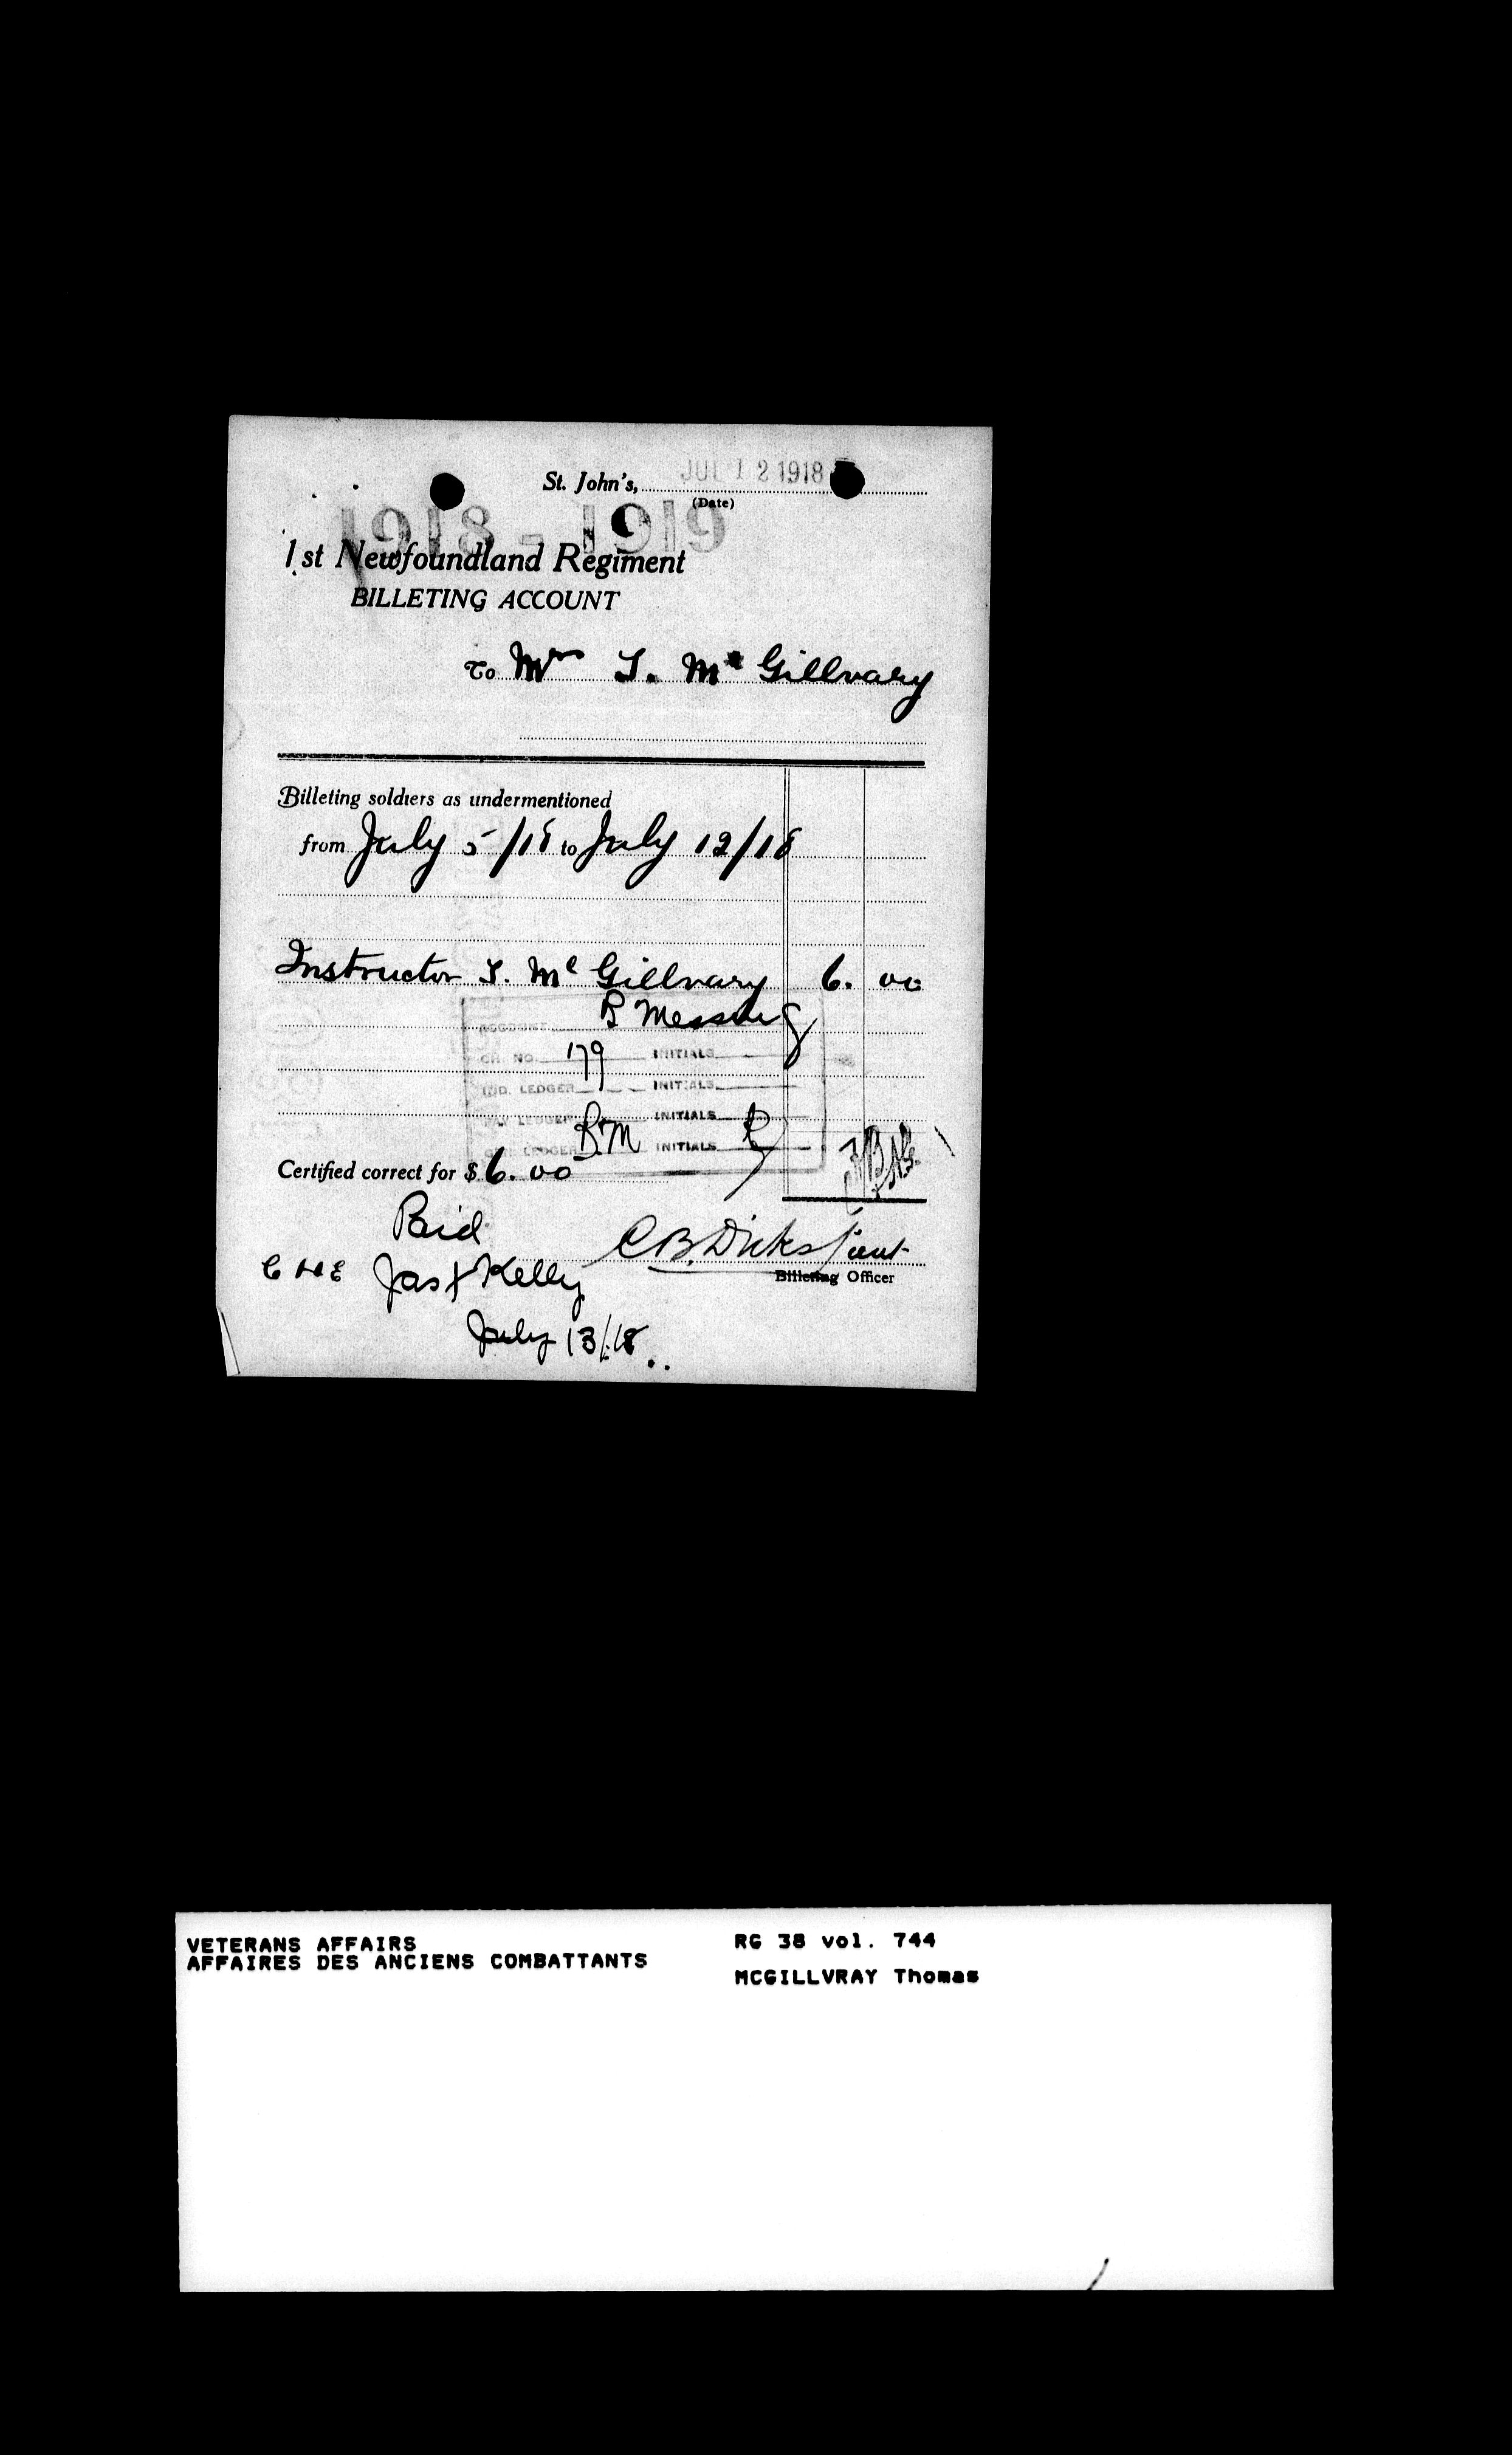 St. John's, JUL 12 1918
(Date)
1918-1919
1st Newfoundland Regiment
BILLETING ACCOUNT
To Mrs T. Mc Gillvary
Billeting soldiers as undermentioned
from July 5/18 to July 12/18
Instructor T. Mc Gillvary 6. 00
ACCOUNT B Messing
CH. NO. 179 INITIALS
IND. LEDGER INITIALS
LEDGER INITIALS
LEDGER B.M INITIALS
Certified correct for $ 6.00
Paid
C.B. Dicks Lieut
Billeting Officer
Jas Kelly
July 13/18
VETERANS AFFAIRS
AFFAIRES DES ANCIENS COMBATTANTS
RG 38 vol. 744
MCGILLVRAY Thomas